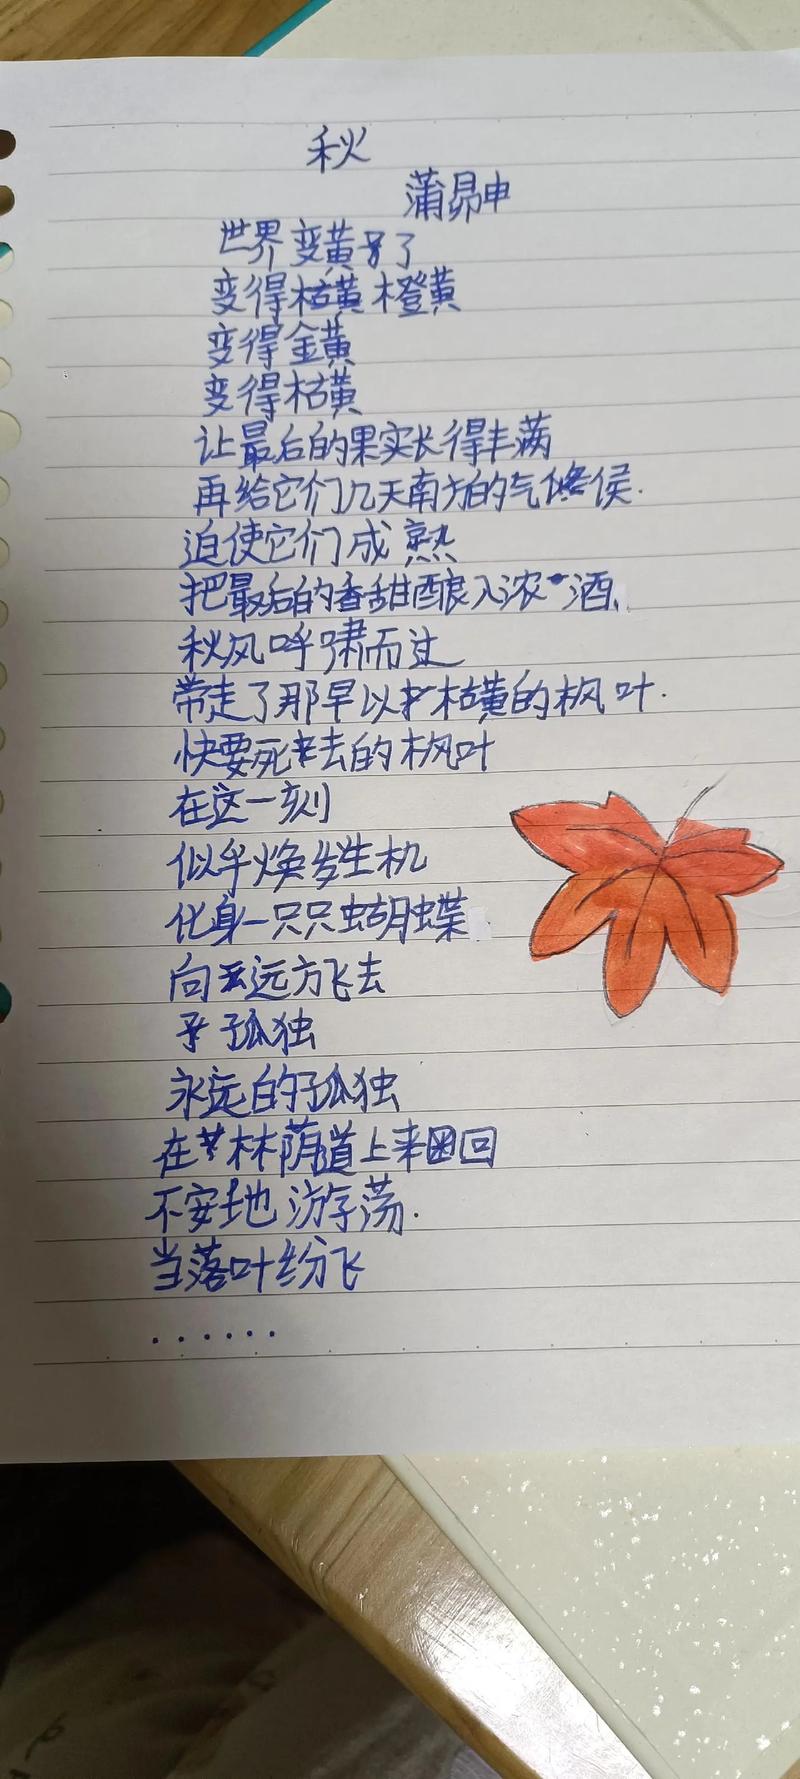 秋
蒲昂申
世界变黄了
变得橙黄
变得金黄
变得枯黄
让最后的果实长得丰满
再给它们几天南方的气候.
迫使它们成熟
把最后的香甜酿入浓酒.
秋风呼啸而过
带走了那早以枯黄的枫叶.
快要死去的枫叶
在这一刻
似乎焕发生机
化身一只只蝴蝶
向远方飞去
孤独
永远的孤独
在林荫道上来回
不安地游荡.
当落叶纷飞
......